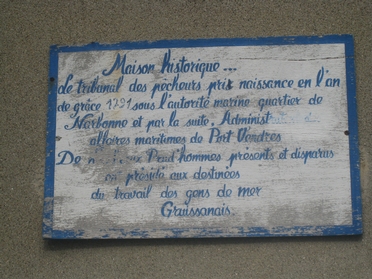 Maison historique...
Le tribunal des pêcheurs prit naissance en l'an
de grâce 1791 sous l'autorité marine quartier de
Narbonne et par la suite, Administ
affaires maritimes de Port Vendres
De Prud'hommes présents et disparus
présidé aux destinées
du travail des gens de mer
Gruissanais.